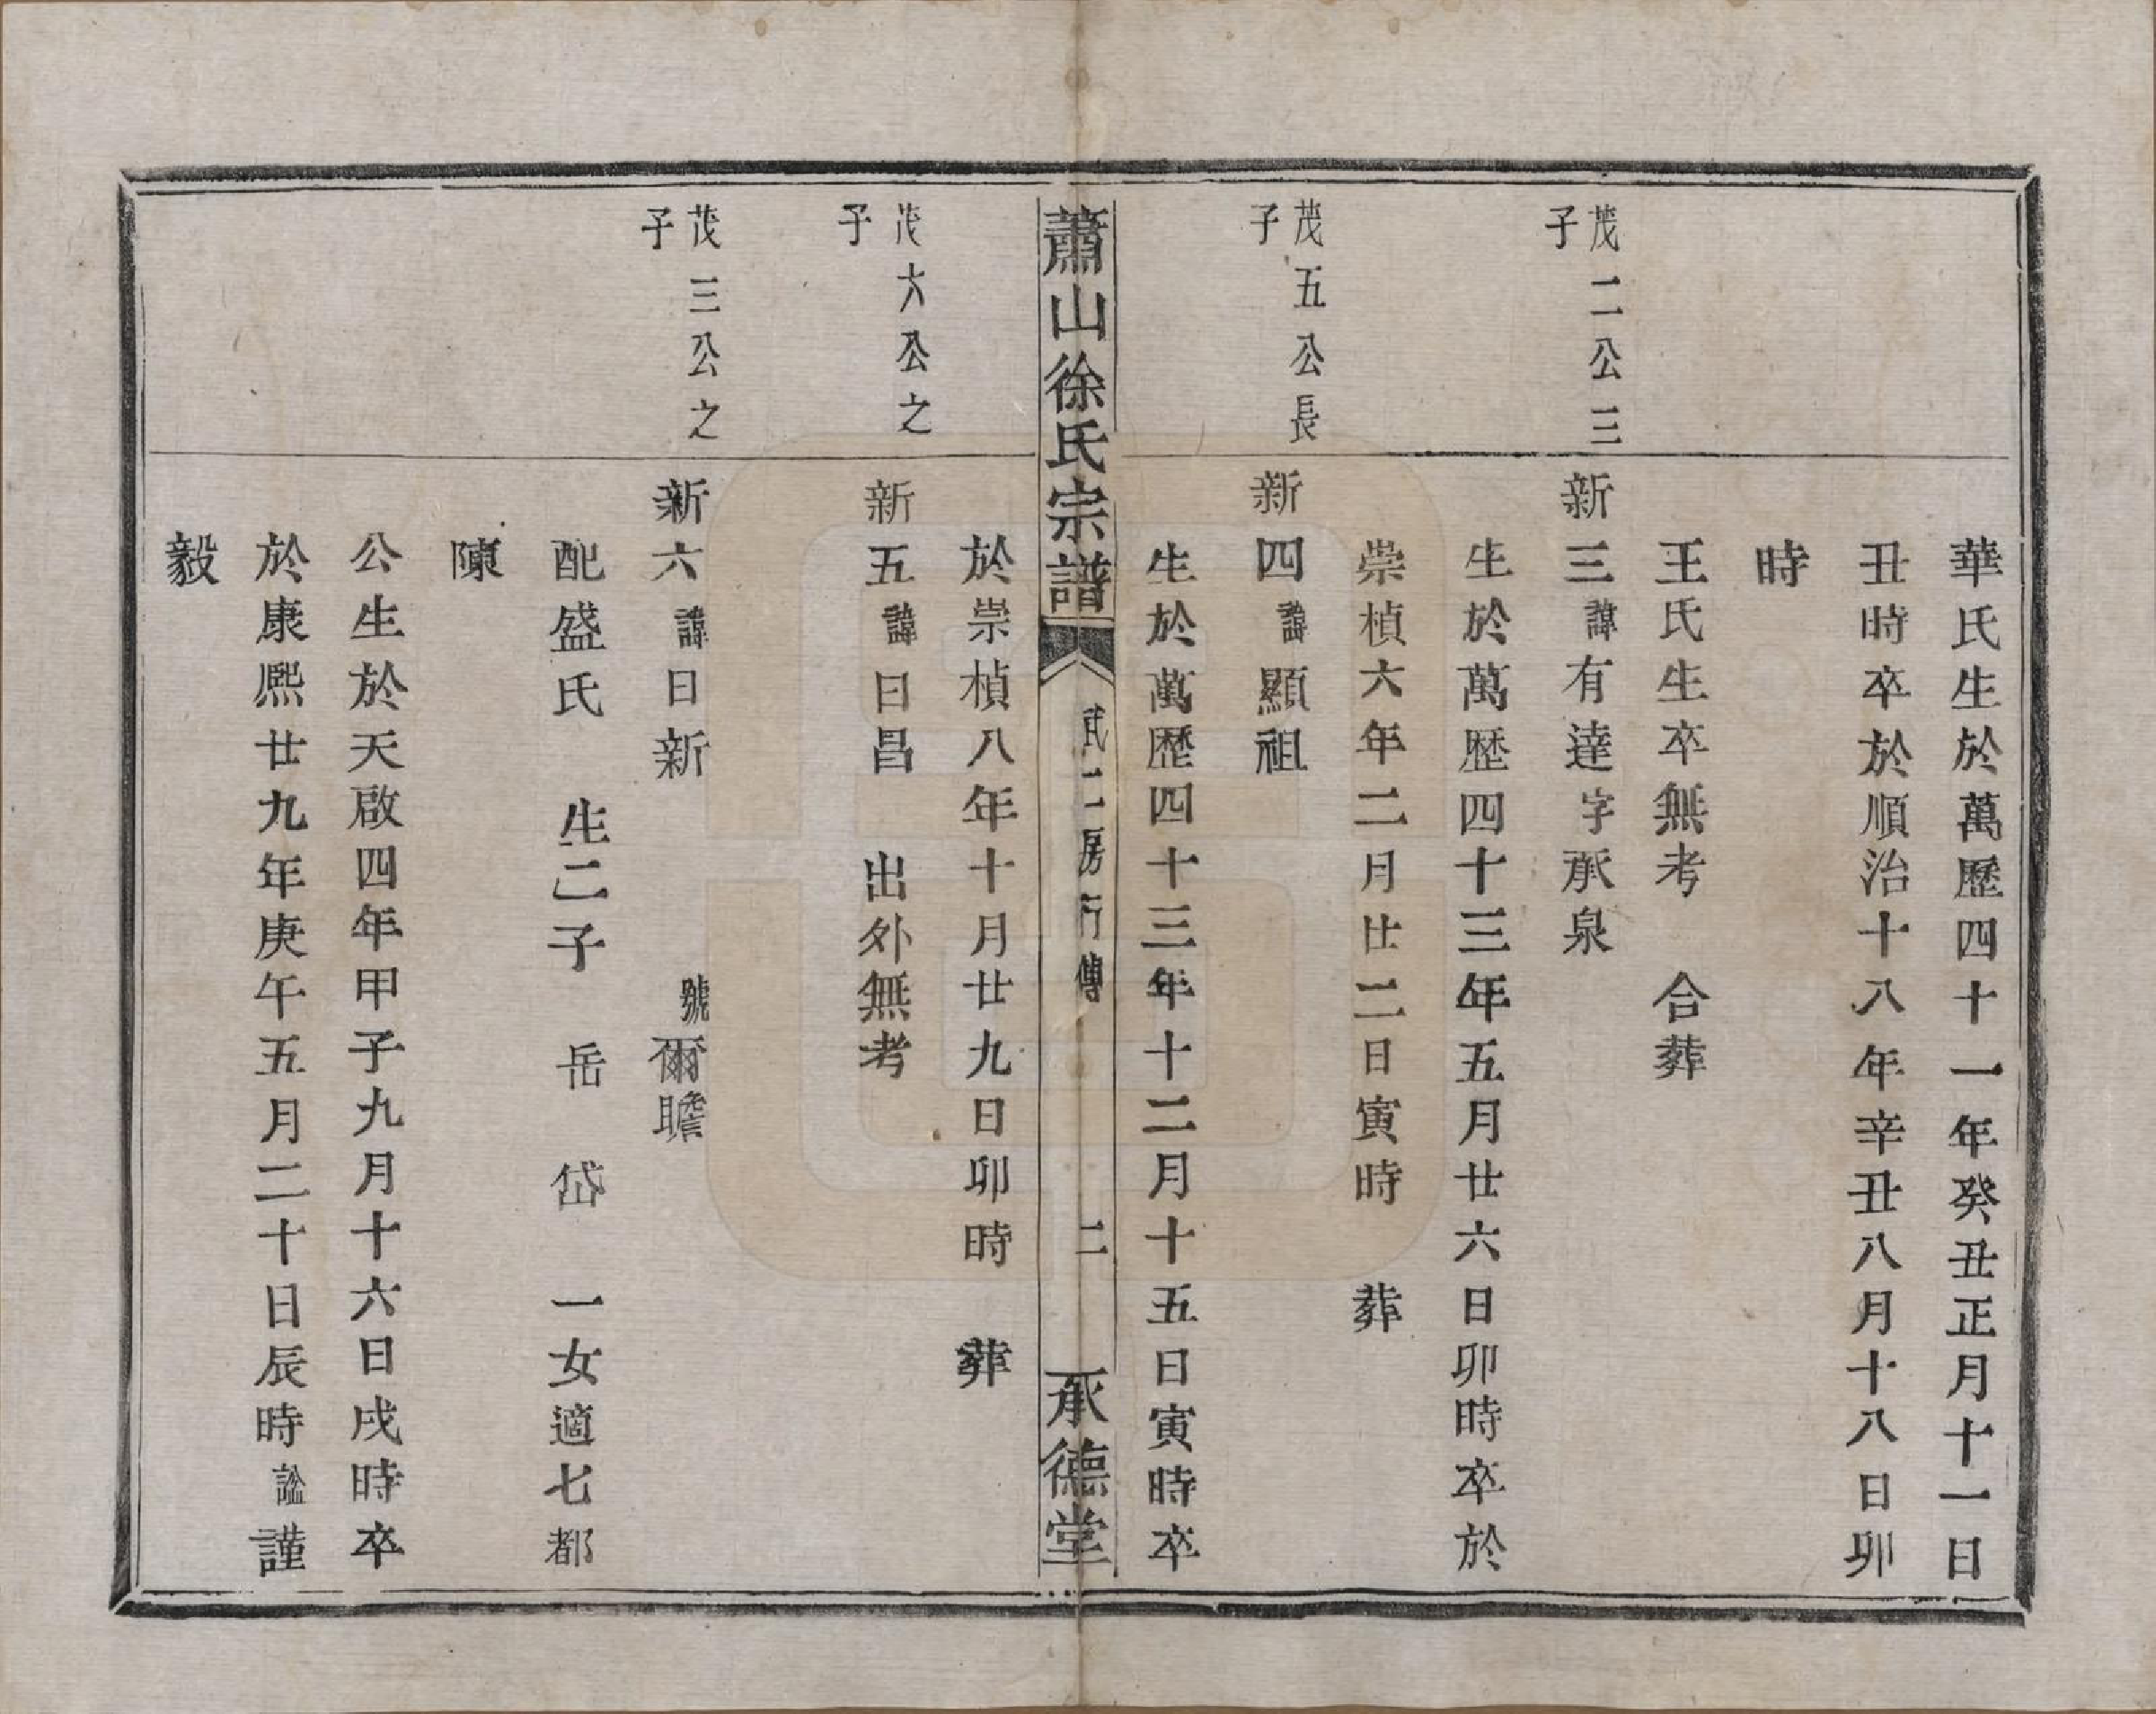 華氏生於萬歷四十一年癸丑正月十一日
丑時卒於順治十八年辛丑八月十八日卯
時
王氏生卒無考　合葬
茂二公三
子
新三諱有達字承泉
生於萬歷四十三年五月廿六日卯時卒於
崇楨六年二月廿二日寅時　葬
茂五公長
子
新四諱顯祖
生於萬歷四十三年十二月十五日寅時卒
蕭山徐氏宗譜　貮二房行傳　二　承德堂
於崇楨八年十月廿九日卯時　葬
茂六公之
子
新五諱日昌　出外無考
茂三公之
子
新六諱日新　號爾瞻
配盛氏　生二子　岳　岱　一女適七都
陳
公生於天啟四年甲子九月十六日戌時卒
於康熙廿九年庚午五月二十日辰時諡謹
毅